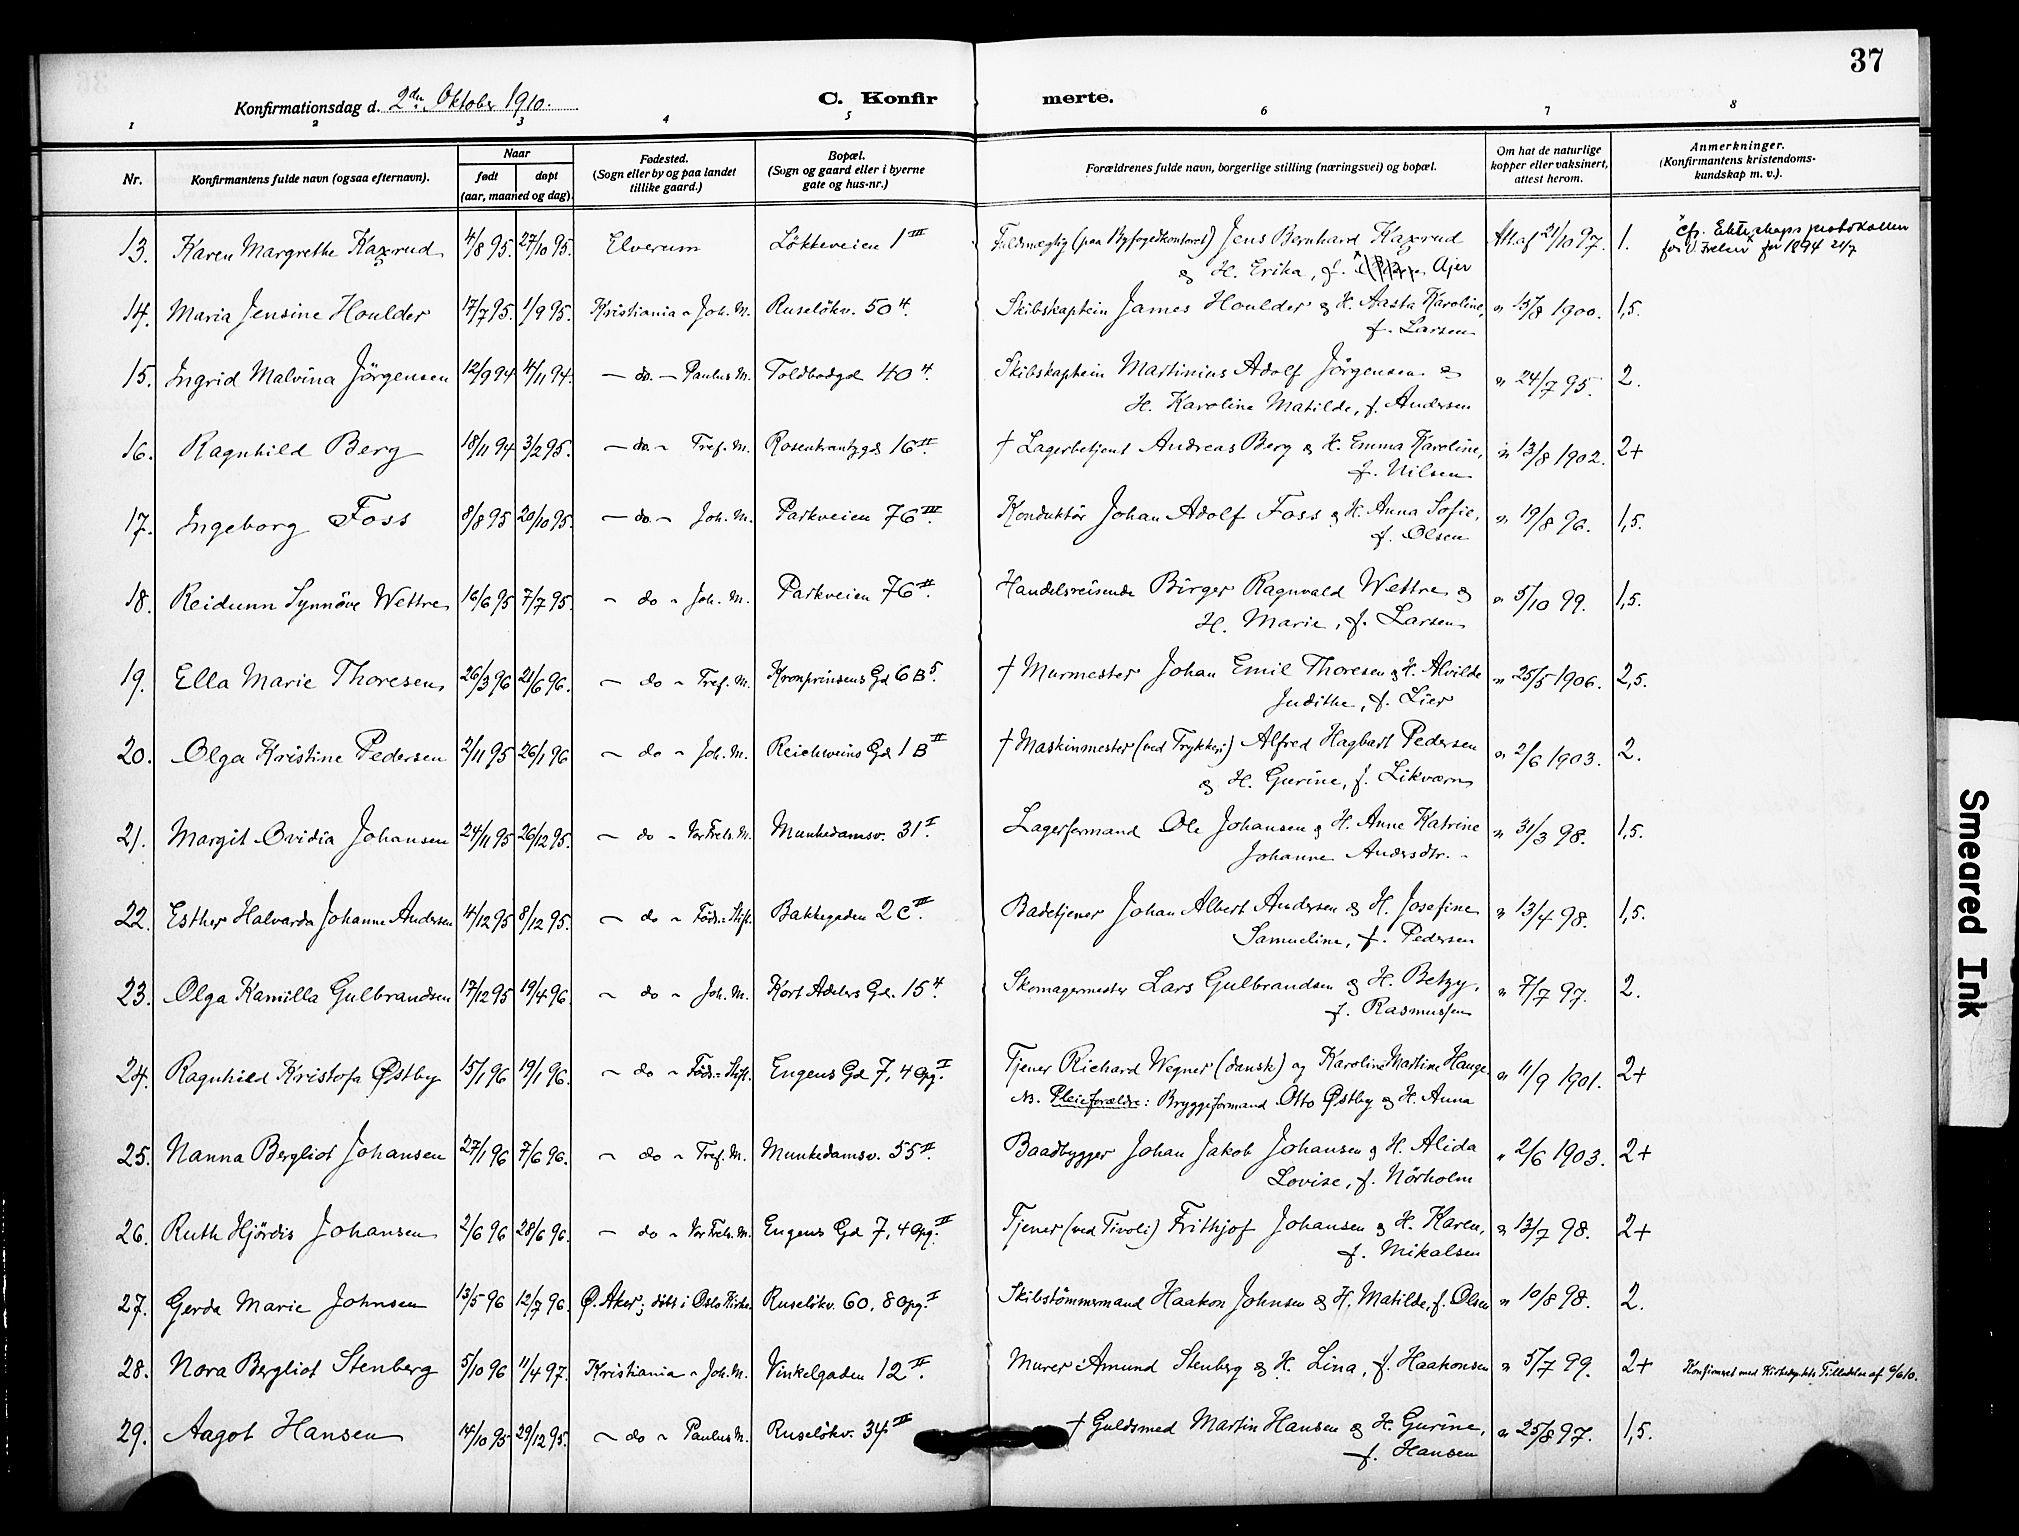 37
Konfirmationsdag d. 2den Oktober 1910.
C. Konfir merte.
1 2 3 4 5 6 7 8
Nr.
Konfirmantens fulde navn (ogsaa efternavn).
Naar
født
døpt
(aar, maaned og dag).
Fødested.
(Sogn eller by og paa landet
tillike gaard.)
Bopæl.
(Sogn og gaard eller i byerne
gate og hus-nr.)
Forældrenes fulde navn, borgerlige stilling (næringsvei) og bopæl.
Om hat de naturlige
kopper eller vaksinert,
attest herom.
Anmerkninger.
(Konfirmantens kristendoms-
kundskap m. v.).
13. Karen Margrethe Kaxrud 4/8 95. 27/10 95. Elverum Løkkeveien 1 III Fuldmægtig (paa Byfogedkontoret) Jens Bernhard Kaxrud Att. af 21/10 97. 1. Cfr. Ekteskapsprotokollen
& H. Erika, f. Ajer for V. Frelser for 1894 21/7
14. Maria Jensine Houlder 17/7 95. 1/9 95. Kristiania - Joh. M. Ruseløkv. 50 4. Skibskaptein James Houlder & H. Aasta Karoline, " 15/8 1900. 1,5.
f. Larsen
15. Ingrid Malvina Jörgensen 12/9 94 4/11 94. — do. — Paulus M. Toldbodgd 40 4. Skibskaptein Martinius Adolf Jörgensen & " 24/7 95. 2.
H. Karoline Matilde, f. Andersen
16. Ragnhild Berg 18/11 94 3/2 95. — do. - Tref. M. Rosenkrantzgd 16 II. † Lagerbetjent Andreas Berg & H. Emma Karoline, " 13/8 1902. 2+
f. Nilsen
17. Ingeborg Foss 8/8 95 20/10 95. — do. - Joh. M. Parkveien 76 III. Konduktör Johan Adolf Foss & H. Anna Sofie, " 19/8 96. 1,5.
f. Olsen
18. Reidunn Synnöve Wettre 16/6 95 7/7 95. - do - Joh. M. Parkveien 76 II. Handelsreisende Birger Ragnvald Wettre & " 5/10 99. 1,5.
H. Marie, f. Larsen
19. Ella Marie Thoresen 26/3 96 21/6 96. - do - Tref. M. Kronprinsens Gd 6 B 5. † Murmester Johan Emil Thoresen & H. Alvilde " 25/5 1906. 2,5.
Judithe, f. Lier
20. Olga Kristine Pedersen 2/11 95 26/1 96 - do - Joh. M. Reichweins Gd 1 B II † Maskinmester (ved Trykkeri) Alfred Hagbart Pedersen " 2/6 1903. 2.
& H. Gurine, f. Likværn
21. Margit Ovidia Johansen 24/11 95 26/12 95. - do - Vor Frels. M. Munkedamsv. 31 I. Lagerformand Ole Johansen & H. Anne Katrine " 31/3 98. 1,5.
Johanne Andersdtr.
22. Esther Halvarda Johanne Andersen 4/12 95 8/12 95. - do - Föds.-Stift. Bakkegaden 2 C II. Badetjener Johan Albert Andersen & H. Josefine " 13/4 98. 1,5.
Samueline, f. Pedersen
23. Olga Kamilla Gulbrandsen 17/12 95 19/4 96. - do - Joh. M. Kort Adelers Gd. 15 4. Skomagermester Lars Gulbrandsen & H. Betzy, " 7/7 97. 2.
f. Rasmussen
24. Ragnhild Kristofa Østby 15/1 96 19/1 96. - do - Föds.-Stift. Eugens Gd 7, 4 Opg. I Tjener Richard Wegner (dansk) og Karoline Martine Hauge. " 11/9 1901. 2+
NB. Pleieforældre: Bryggeformand Otto Østby & H. Anna
25. Nanna Bergliot Johansen 27/1 96 7/6 96. - do - Tref. M. Munkedamsv. 55 II. Baadbygger Johan Jakob Johansen & H. Alida " 2/6 1903. 2+
Lovise, f. Nörholm
26. Ruth Hjördis Johansen 2/6 96 28/6 96. - do - Vor Frels. M. Eugens Gd 7, 4 Opg. II Tjener (ved Tivoli) Frithjof Johansen & H. Karen, " 13/7 98. 2+
f. Mikalsen
27. Gerda Marie Johnsen 13/5 96 12/7 96. Ø. Aker; døbt i Oslo Kirke. Ruseløkv. 60, 8 Opg. I Skibstömmermand Haakon Johnsen & H. Matilde, f. Olsen " 10/8 98. 2.
28. Nora Bergliot Stenberg 5/10 96 11/4 97. Kristiania - Joh. M. Vinkelgaden 12 II. Murer Amund Stenberg & H. Lina, f. Haakonsen " 5/7 99. 2+ Konfirmert med Kirkedeptets Tilladelse af 6/6 10.
29. Aagot Hansen 14/10 95 29/12 95. - do - Paulus M. Ruseløkv. 34 II † Guldsmed Martin Hansen & H. Gurine, " 25/8 97. 1,5.
f. Hansen
Smeared Ink